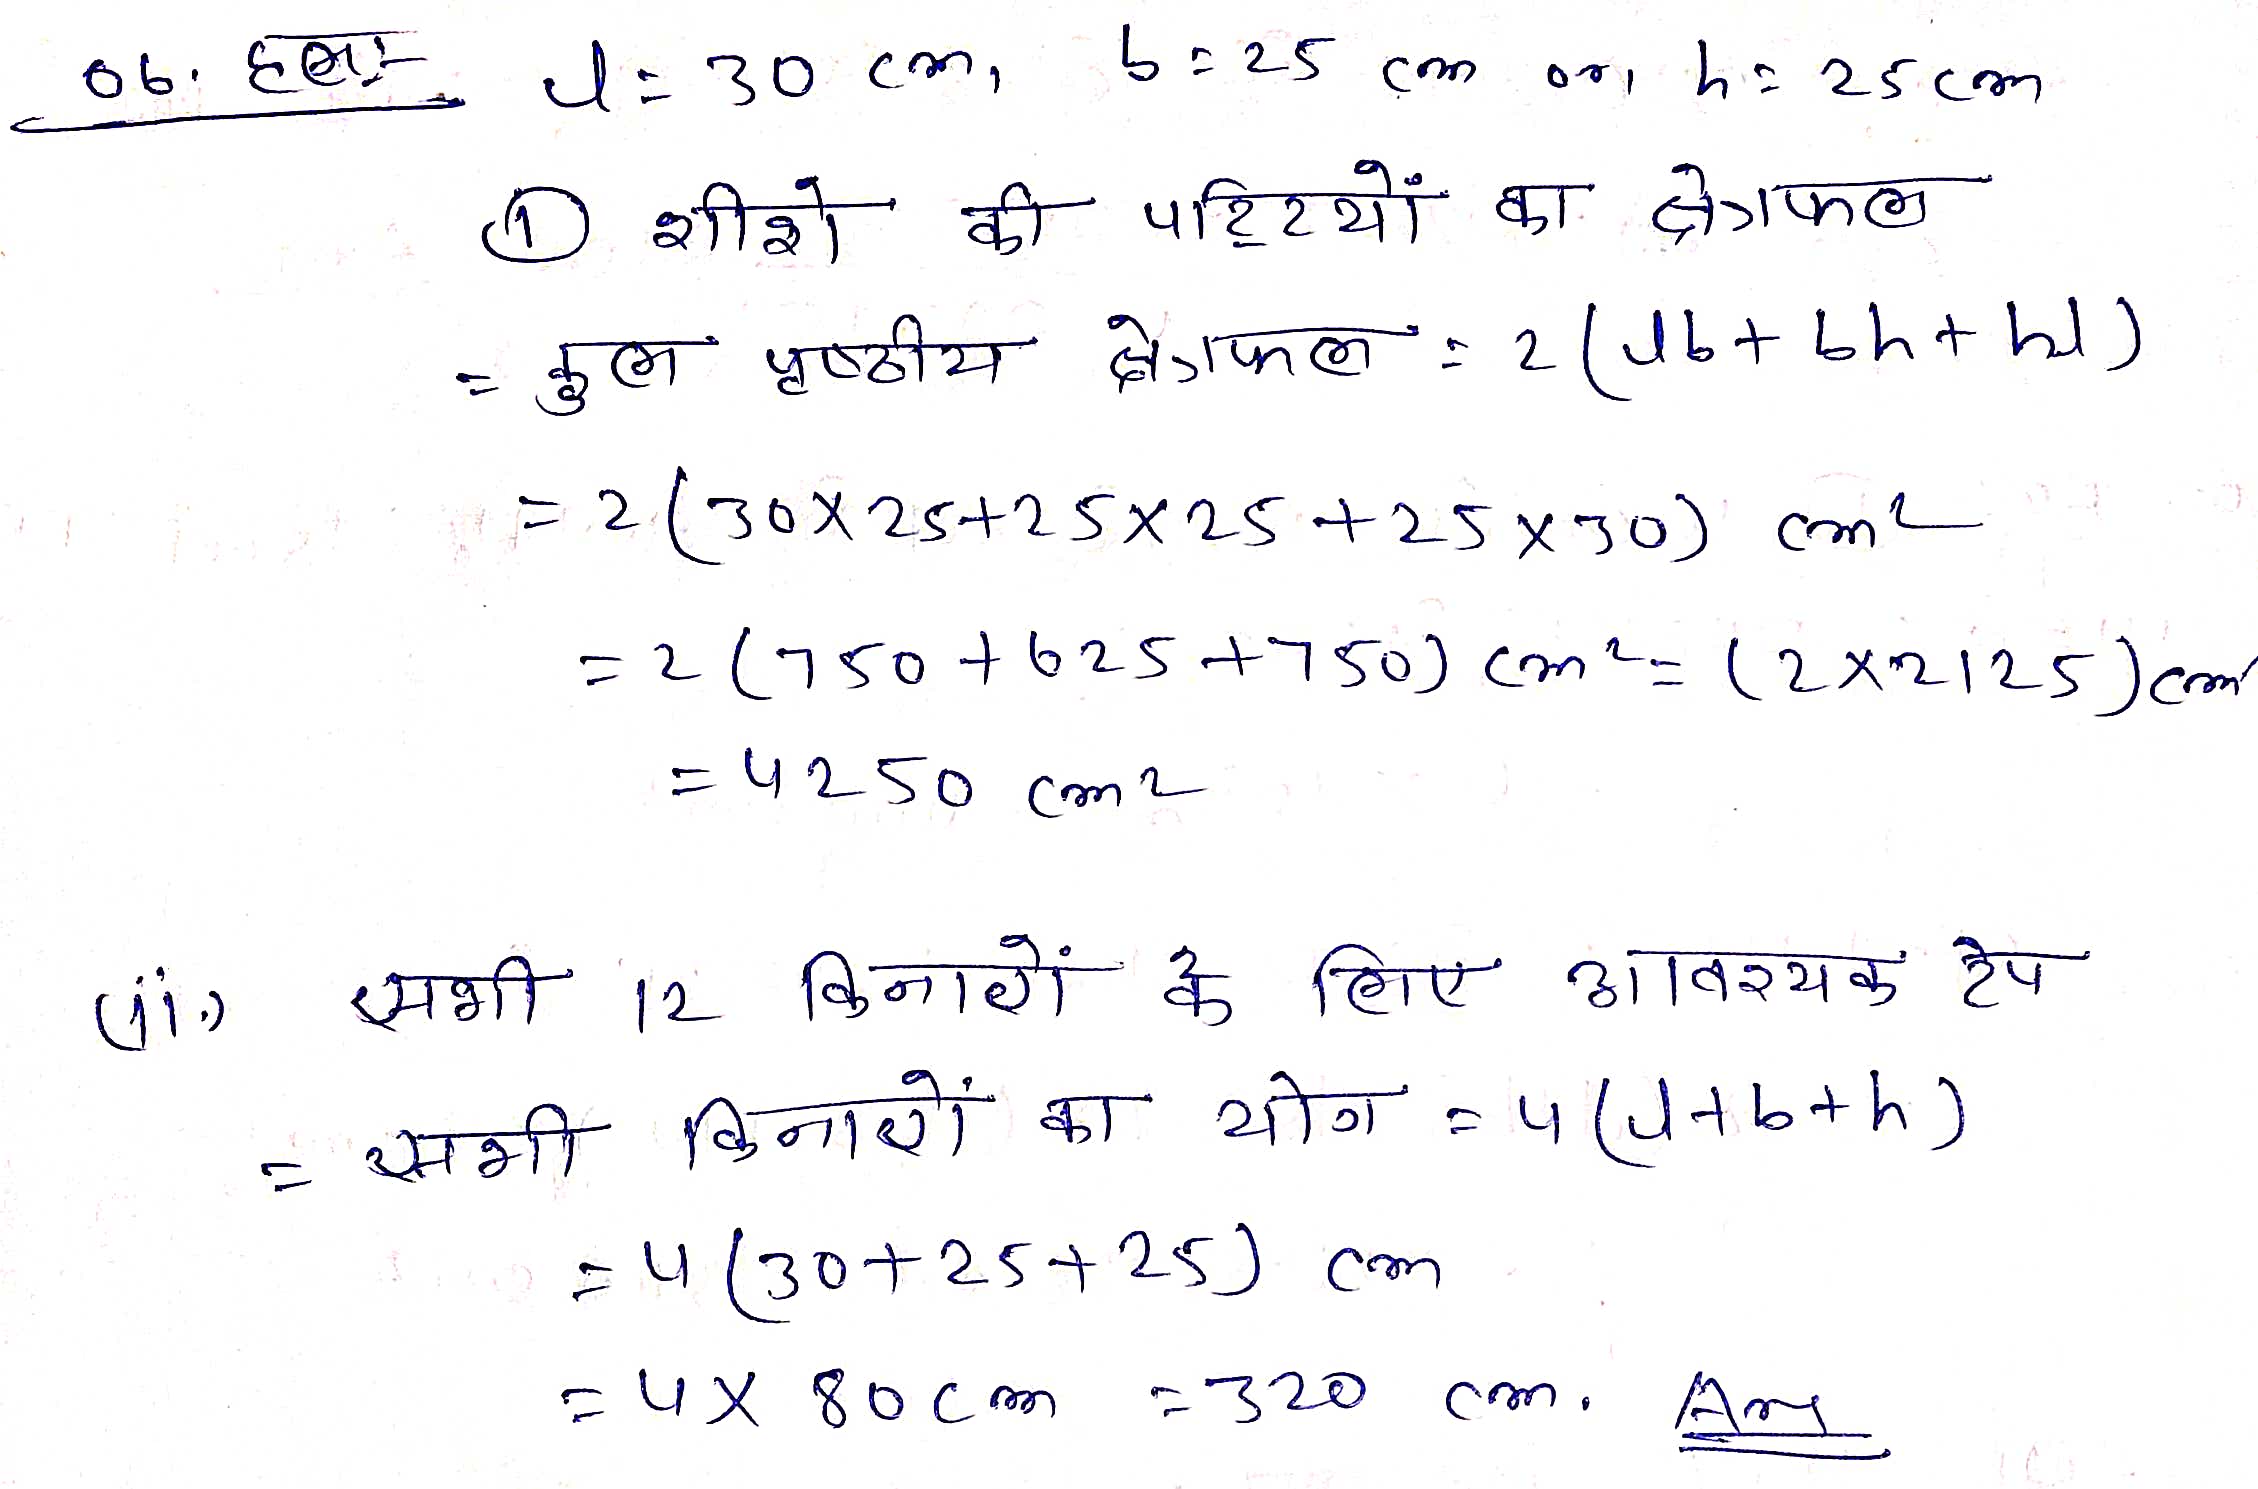 06. हल:- l = 30 cm, b = 25 cm or, h = 25 cm
① शीशे की पट्टियों का क्षेत्रफल
= कुल पृष्ठीय क्षेत्रफल = 2 (lb + bh + hl)
= 2 (30 × 25 + 25 × 25 + 25 × 30) cm²
= 2 (750 + 625 + 750) cm² = (2 × 2125) cm²
= 4250 cm²
(ii.) सभी 12 किनारों के लिए आवश्यक टेप
= सभी किनारों का योग = 4 (l + b + h)
= 4 (30 + 25 + 25) cm
= 4 × 80 cm = 320 cm. Ans